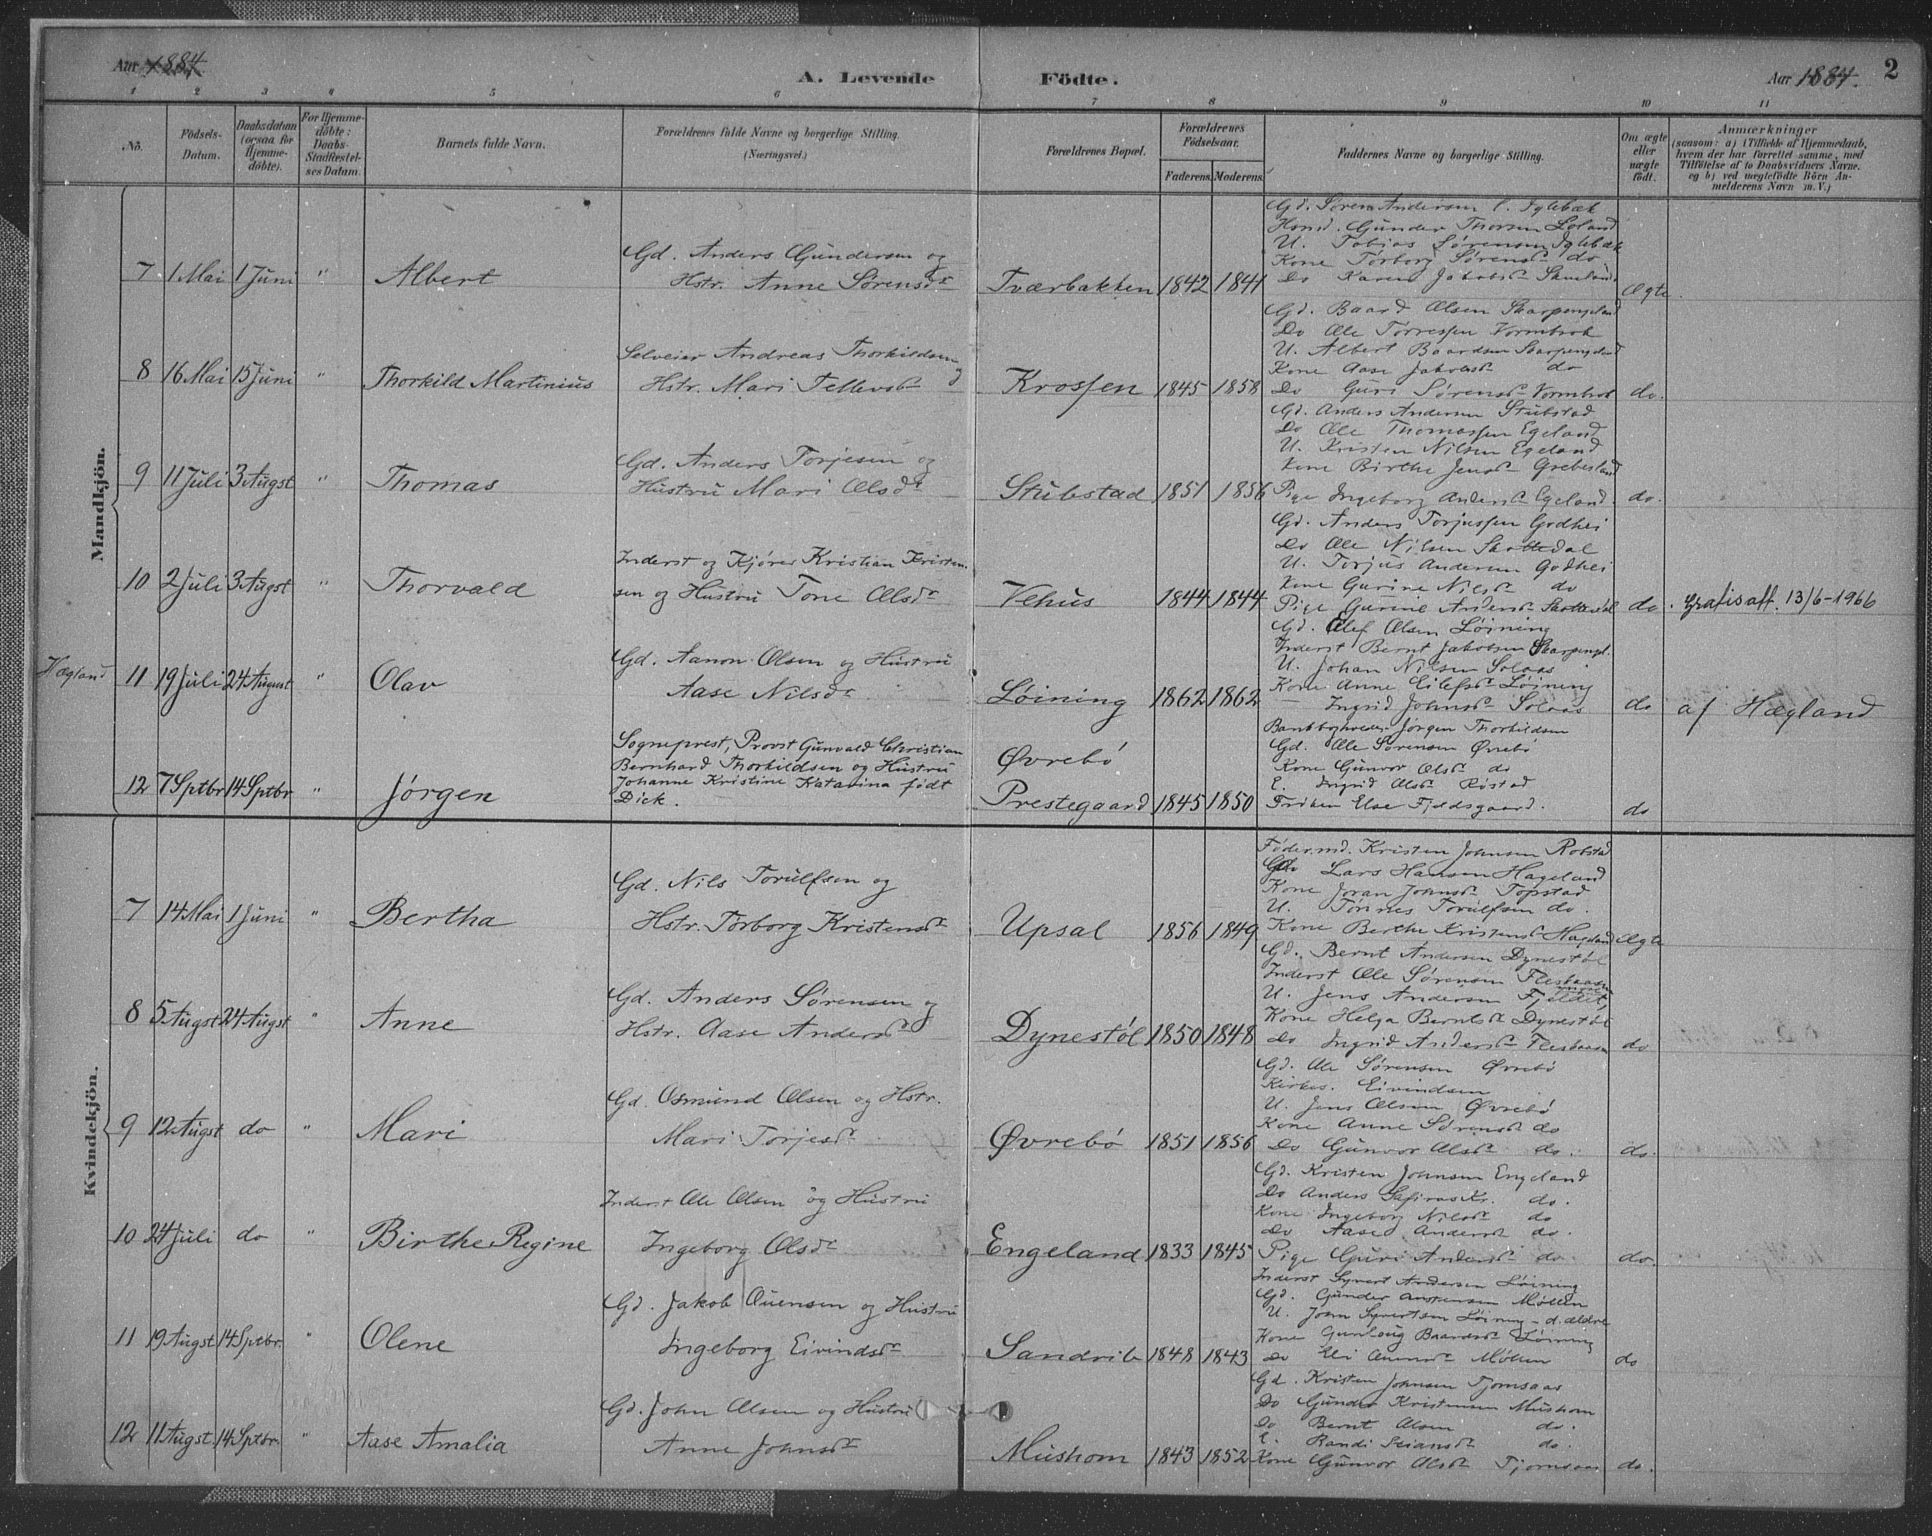 Aar 1884.
A. Levende Födte.
Aar 1884.
2
1 2 3 4 5 6 7 8 9 10 11
No.
Födsels-
Datum.
Daabsdatum
(ogsaa for
Hjemme-
döbte).
For Hjemme-
döbte:
Daabs-
Stadfæstel-
ses Datum.
Barnets fulde Navn.
Forældrenes fulde Navne og borgerlige Stilling.
(Næringsvei.)
Forældrenes Bopæl.
Forældrenes
Födselsaar.
Faderens. Moderens.
Faddernes Navne og borgerlig Stilling.
Om ægte
eller
uægte
födt.
Anmærkninger
(saasom: a) i Tilfælde af Hjemmedaab,
hvem der har forrettet samme, med
Tilföielse af to Daabsvidners Navne.
og b) ved uægtefödte Börn An-
melderens Navn m. V.)
Mandkjön.
7 1 Mai 1 Juni " Albert
Gd. Anders Gundersen og
Hstr. Anne Sørensdr
Tværbakken 1842 1841
Gd. Søren Andersen Iglebæk
Gunder Thorsen
U. Tobias Sørensen Iglebæk
Kone Torborg Sørensdr do
Do Karen Jakobsdr
Ægte.
8 16 Mai 15 Juni " Thorkild Martinius
Selveier Andreas Thorkildsen og
Hstr. Mari Tellevsdr
Krossen 1845 1858
Gd. Baard Olsen Skarpengland
Do Ole Torressen Vormbrok
U. Albert Baardsen Skarpengland
Kone Aase Jakobsdr do
Do Guri Sørensdr Vormbrok
do.
9 11 Juli 3 Augst " Thomas
Gd. Anders Torjesen og
Hustru Mari Olsdr
Stubstad 1851 1856
Gd. Anders Andersen Stubstad
Do Ole Thomassen Egeland
U. Kristen Nilsen Egeland
Kone Birthe Jensdr
Pige Ingeborg Andersdr Egeland.
do.
10 2 Juli 3 Augst " Thorvald
Inderst og Kjører Kristian Kristen-
sen og Hustru Tone Olsdr
Vehus 1844 1844
Gd. Anders Torjussen Godhei
Do Ole Nilsen Skottedal
U. Torjus Andersen Godhei
Kone Gurine Nilsdr do
Pige Gurine Andersdr Skottedal
do.
Gratisatt. 13/6-1966
Hægland
11 19 Juli 24 August " Olav
Gd. Aanon Olsen og Hustru
Aase Nilsdr
Løining 1862 1862
Gd. Olef Olsen Løining
Inderst Bernt Jakobsen Skarpengl.
U. Johan Nilsen Solaas
Kone Anne Eilefsdr Løining
— Ingrid Johnsdr Solaas
do
af Hægland
12 7 Sptbr 14 Sptbr " Jørgen
Sogneprest, Provst Gunvald Christian
Bernhard Thorkildsen og Hustru
Johanne Kristine Katarina født
Dick.
Øvrebø
Prestegaard 1845 1850
Jørgen Thorkildsen
Gd. Ole Sørensen Øvrebø
Kone Gunvor Olsdr do
E. Ingrid Olsdr Røstad
Frøken Else Fjeldsgaard.
do
Kvindekjön.
7 14 Mai 1 Juni " Bertha
Gd. Nils Torulfsen og
Hstr. Torborg Kristensdr
Upsal 1856 1849
Føder.md. Kristen Johnsen Robstad
Gd. Lars Hansen Hageland
Kone Joran Johnsdr Topstad
U. Tønnes Torulfsen do.
Kone Berthe Kristensdr Hageland
Ægte
8 5 Augst 24 Augst " Anne
Gd. Anders Sørensen og
Hstr. Aase Andersdr
Dynestøl 1850 1848
Gd. Bernt Andersen Dynestøl
Inderst Ole Sørensen
U. Jens Andersen
Kone Helga Berntsdr Dynestøl
Do Ingrid Andersdr
do
9 12 Augst do " Mari
Gd. Osmund Olsen og Hstr.
Mari Torjesdr
Øvrebø 1851 1856
Gd. Ole Sørensen Øvrebø
Kirkes. Eivindsen
U. Jens Olsen Øvrebø
Kone Anne Sørensdr do
Do Gunvor Olsdr do.
do.
10 24 Juli do " Birthe Regine
Inderst Ole Olsen og Hustru
Ingeborg Olsdr
Engeland 1833 1845
Gd. Kristen Johnsen Engeland
Do Anders do.
Kone Ingeborg Nilsdr do
Do Aase Andersdr do.
Pige Guri Andersdr do
do.
11 19 Augst 14 Sptbr. " Olene
Gd. Jakob Ouensen og Hustru
Ingeborg Eivindsdr
Sandvik 1848 1843
Inderst Syvert Andersen Løining
Gd. Gunder Møllen
U. John Syvertsen Løining - d. ældre
Kone Gunlaug Baardsdr Løining
Do Møllen
do
12 11 Augst. 14 Sptbr. " Aase Amalia
Gd. John Olsen og Hustru
Anne Johnsdr
Mushom 1843 1852
Gd. Kristen Johnsen Tjomsaas
Do Gunder Kristensen Mushom
Do Bernt Olsen do.
E. Randi do.
Kone Gunvor Olsdr Tjomsaas
do.